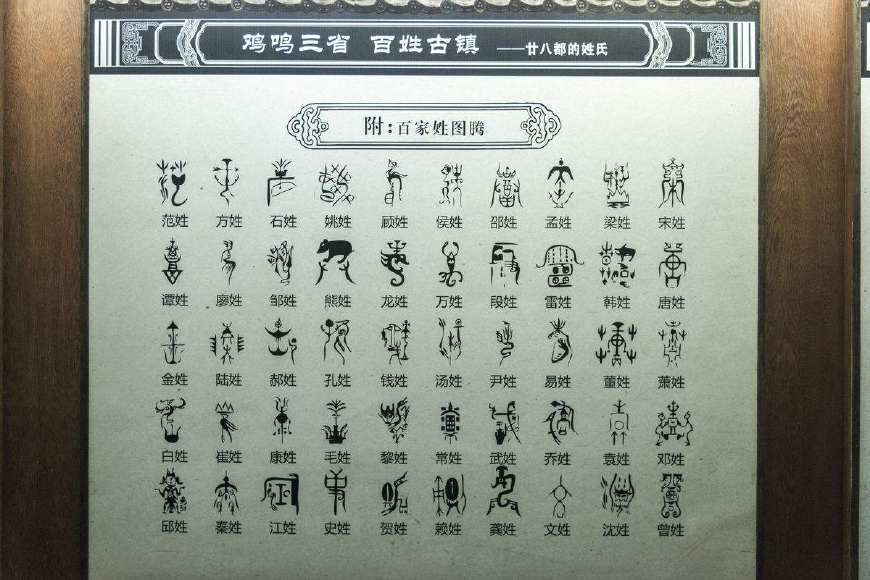 鸡鸣三省 百姓古镇 ——廿八都的姓氏
附：百家姓图腾
范姓 方姓 石姓 姚姓 顾姓 侯姓 邵姓 孟姓 梁姓 宋姓
谭姓 廖姓 邹姓 熊姓 龙姓 万姓 段姓 雷姓 韩姓 唐姓
金姓 陆姓 郝姓 孔姓 钱姓 汤姓 尹姓 易姓 董姓 萧姓
白姓 崔姓 康姓 毛姓 黎姓 常姓 武姓 乔姓 袁姓 邓姓
邱姓 秦姓 江姓 史姓 贺姓 赖姓 龚姓 文姓 沈姓 曾姓